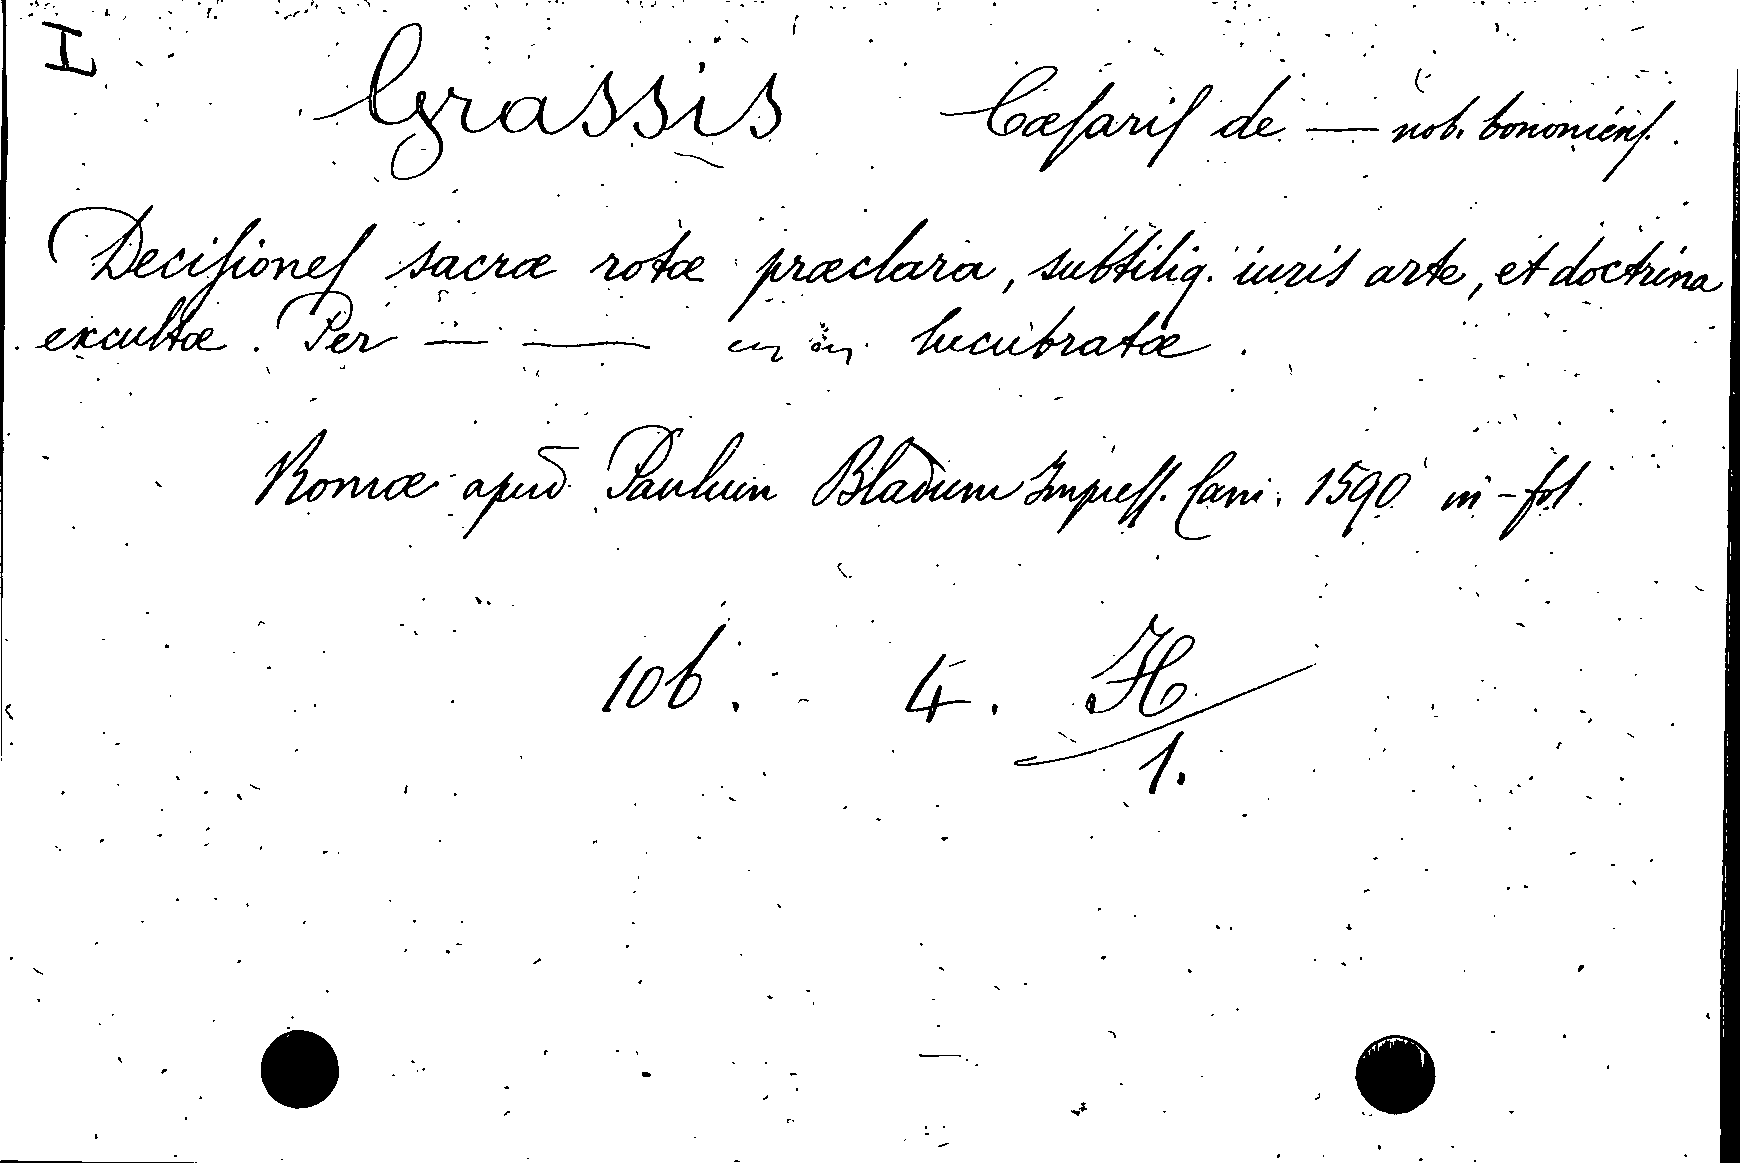 I
Grassis Cæsaris de — nob. bononiens.
Decisiones sacræ rotæ præclara, subtiliq. iuris arte, et doctrina
excultæ. Per — — lucubratæ.
Romæ apud Paulum Bladum Impress. Cam. 1590 in-fol.
106. 4. H
1.